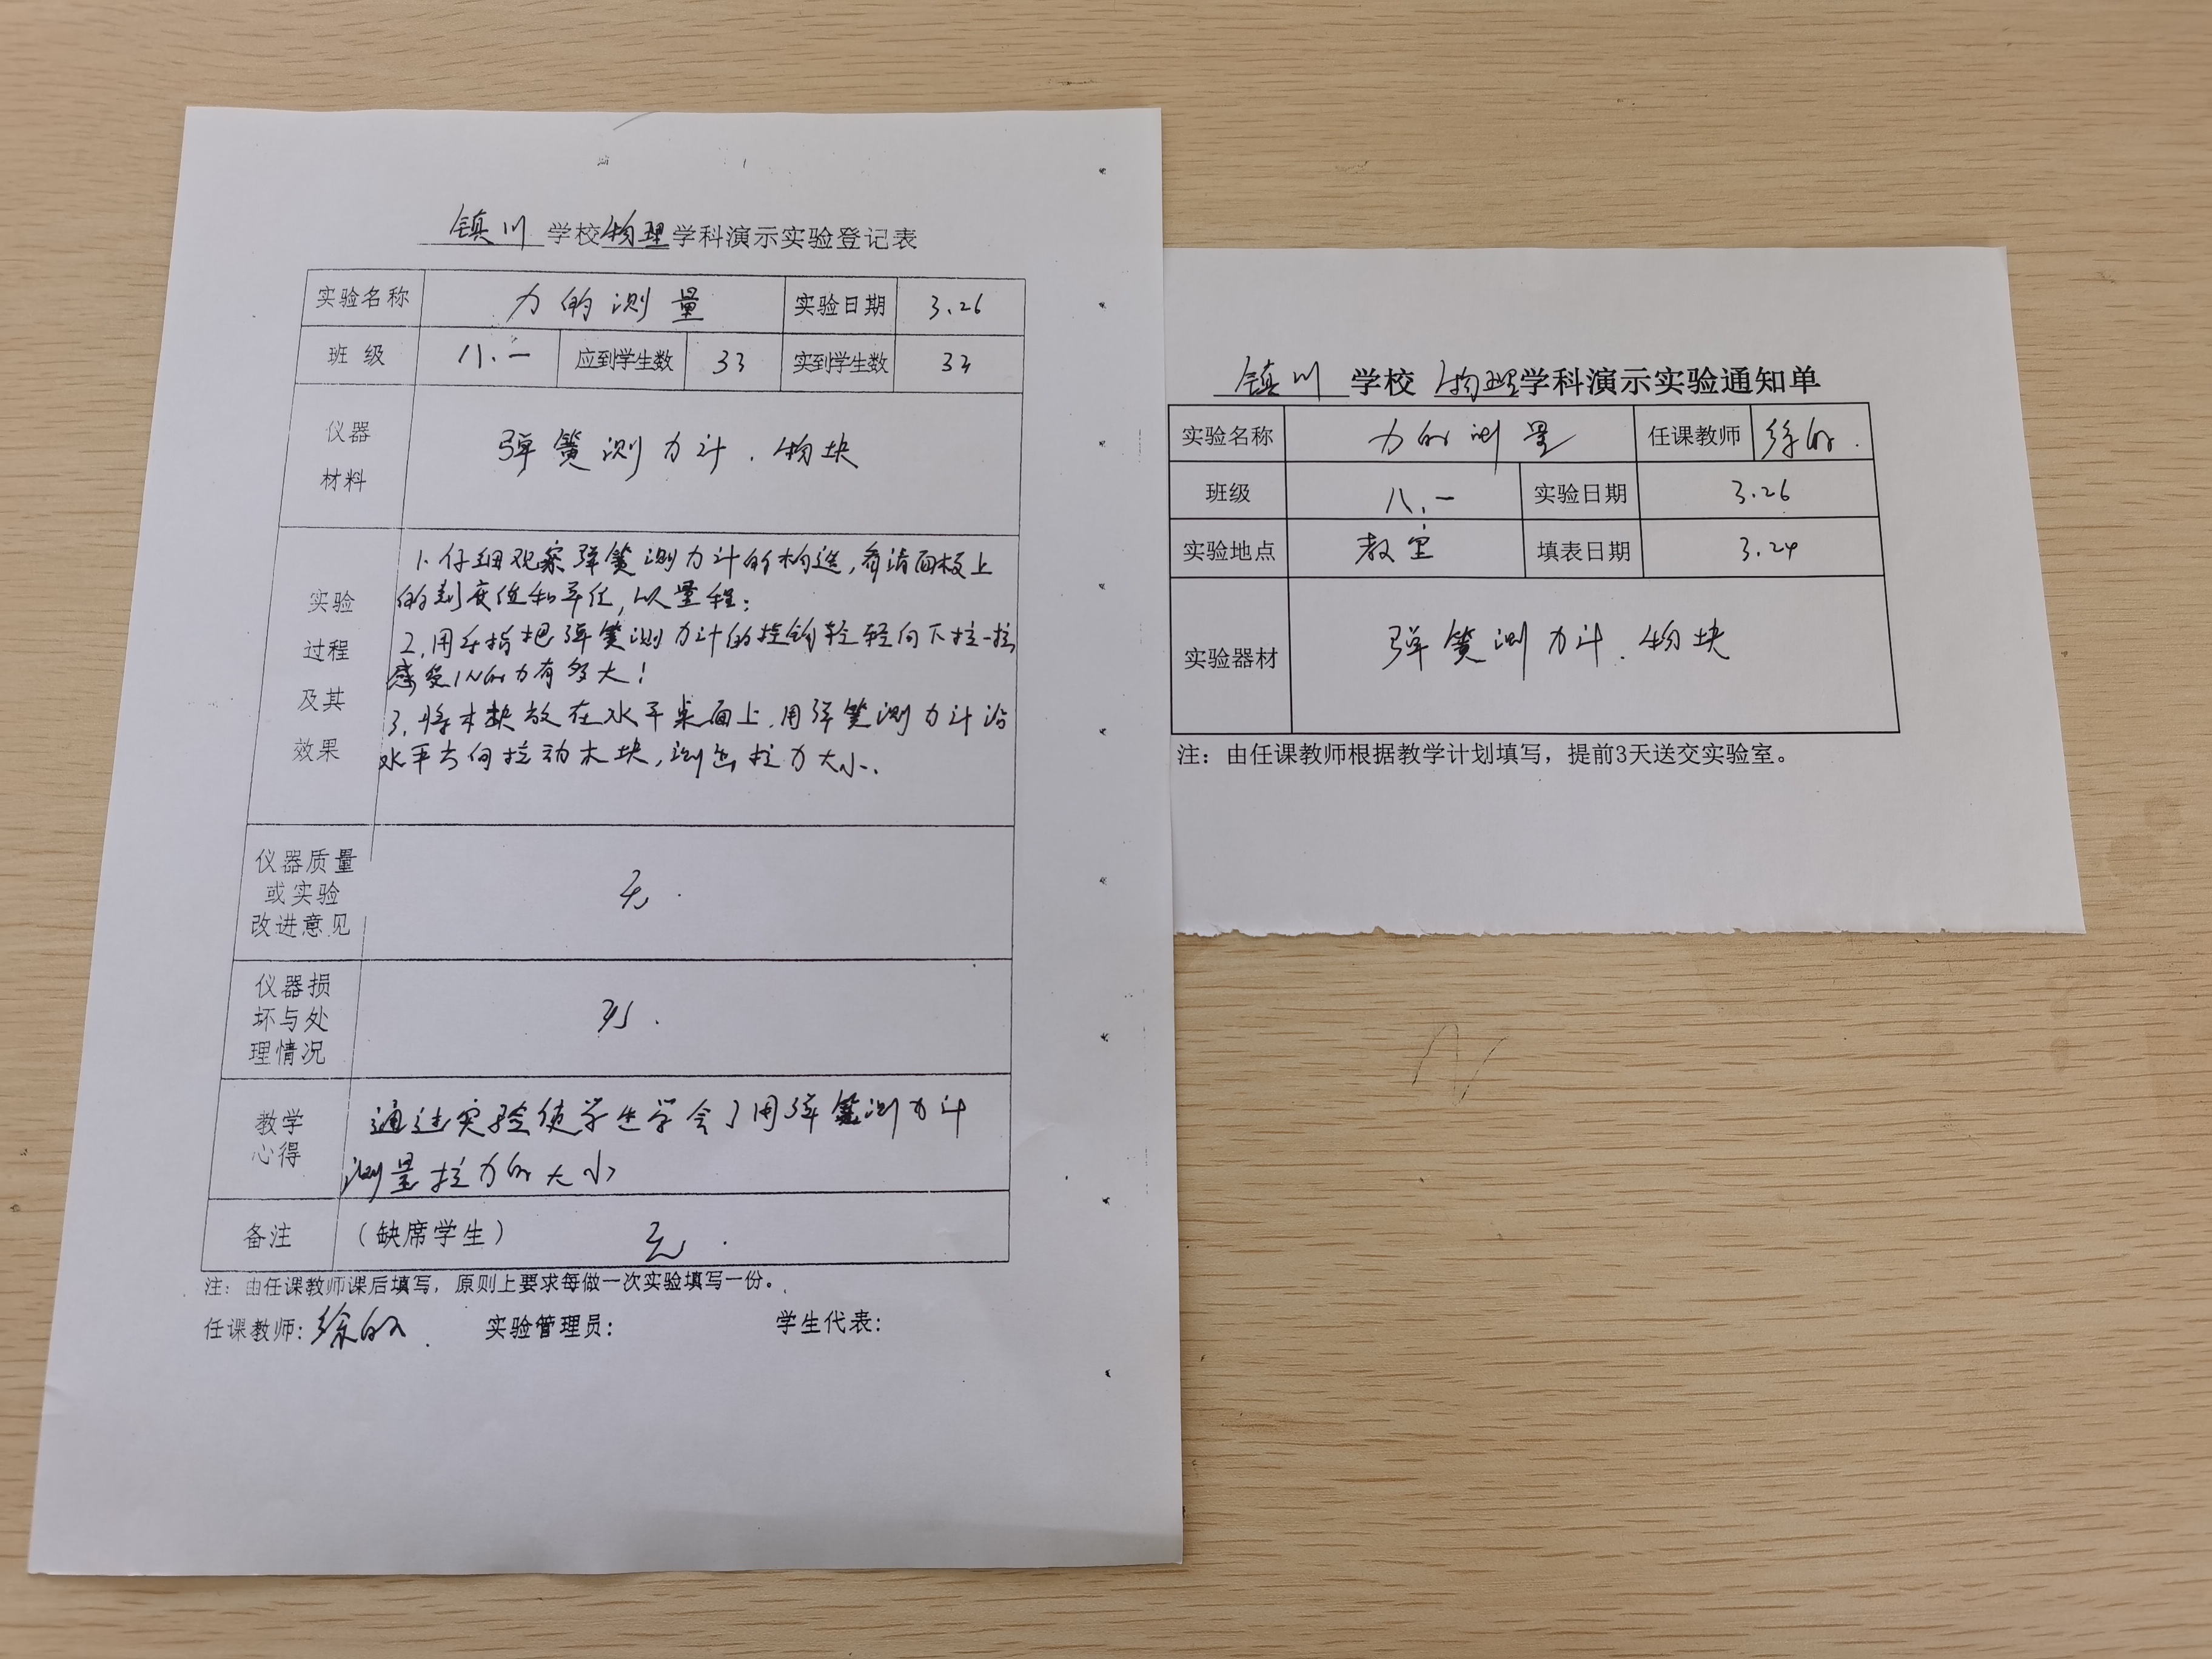 镇川 学校 物理 学科演示实验登记表
实验名称 力的测量 实验日期 3.26
班级 八.一 应到学生数 33 实到学生数 33
仪器 弹簧测力计、物块
材料
实验过程及其效果
1.仔细观察弹簧测力计的构造,看清面板上
的刻度值和单位,以量程;
2.用手指把弹簧测力计的挂钩轻轻向下拉一拉
感受1N的力有多大!
3.将木块放在水平桌面上,用弹簧测力计沿
水平方向拉动木块,测出拉力大小.
仪器质量 无.
或实验
改进意见
仪器损
坏与处
理情况
教学 通过实验使学生学会了用弹簧测力计
心得 测量拉力的大小
备注 (缺席学生) 无.
注:由任课教师课后填写,原则上要求每做一次实验填写一份。
任课教师:徐 实验管理员: 学生代表:
镇川 学校 物理学科演示实验通知单
实验名称 力的测量 任课教师 徐
班级 八.一 实验日期 3.26
实验地点 教室 填表日期 3.24
实验器材 弹簧测力计、物块
注:由任课教师根据教学计划填写,提前3天送交实验室。